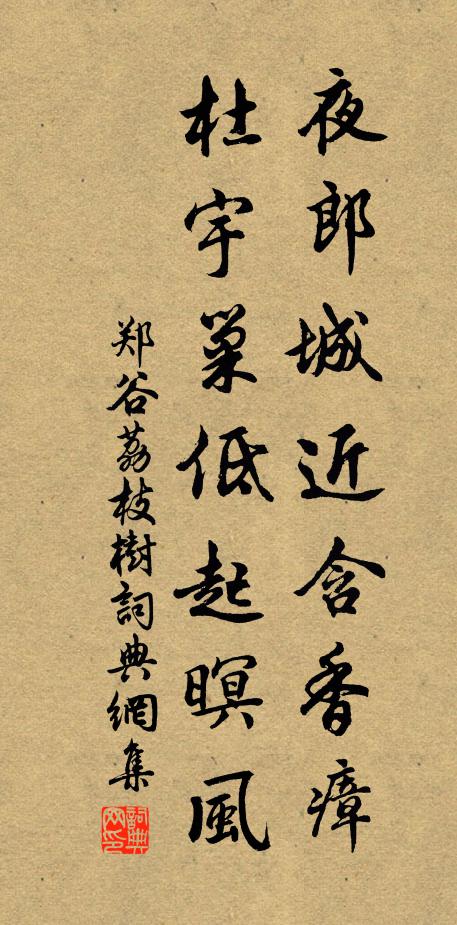 夜郎城近含香瘴
杜宇巢低起暝風
郑谷荔枝樹詞典網集
詞典
网印